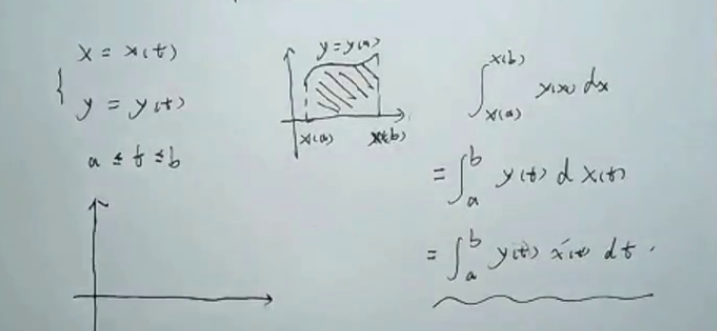 { x = x(t)
y = y(t)
a ≤ t ≤ b
y = y(x)
x(a) x(b)
∫_{x(a)}^{x(b)} y(x) dx
= ∫_a^b y(t) d x(t)
= ∫_a^b y(t) x'(t) dt.